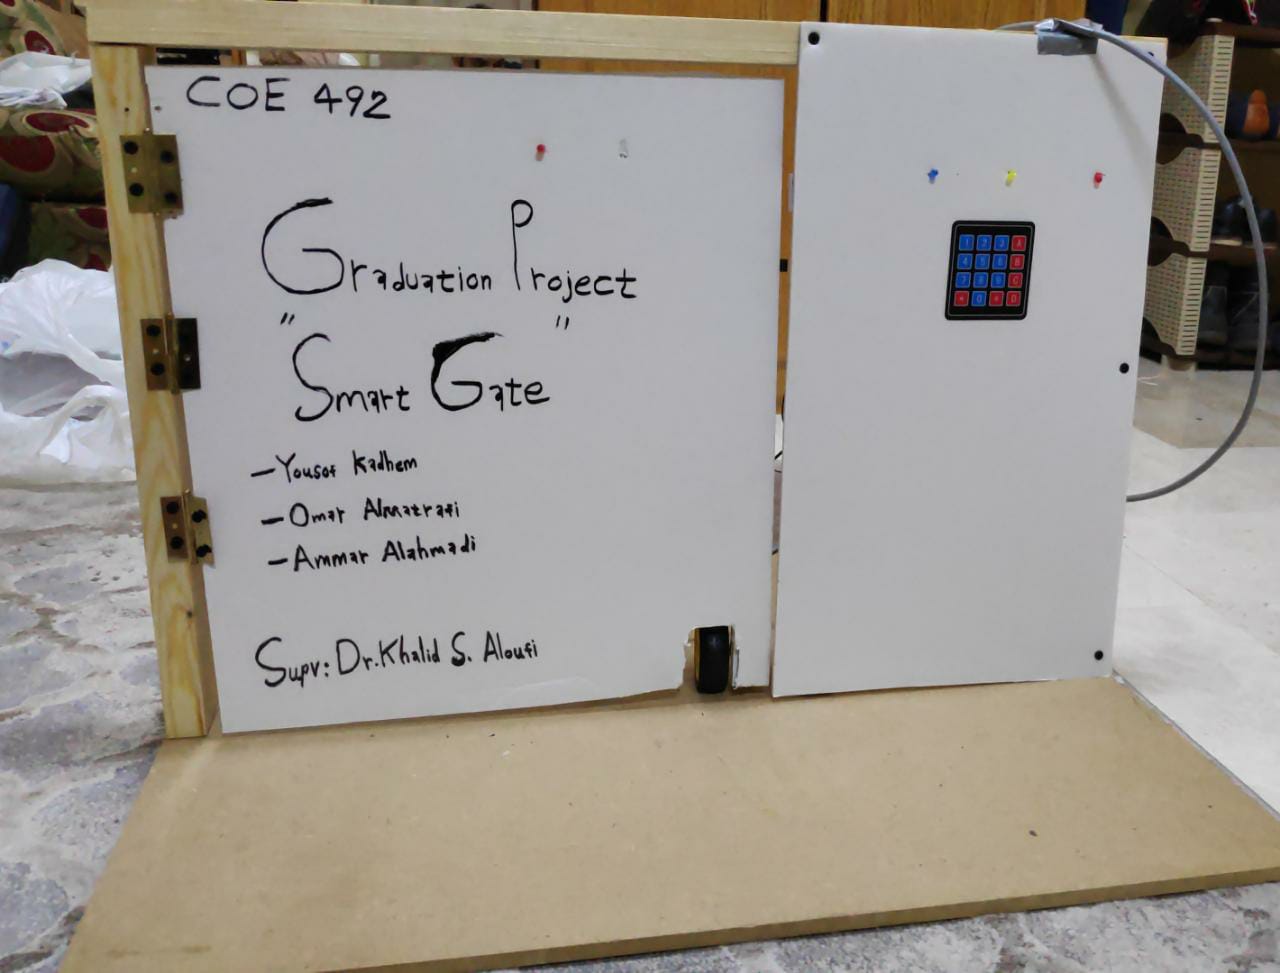 COE 492
Graduation Project
" Smart Gate "
- Yousof Kadhem
- Omar Almatrafi
- Ammar Alahmadi
Supv: Dr. Khalid S. Aloufi
1 2 3 A
4 5 6 B
7 8 9 C
* 0 # D